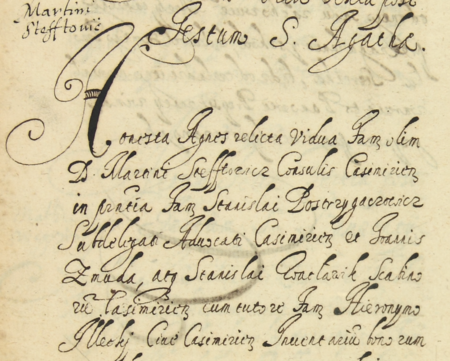 Martini
Stefftowic
Festum S. Agathæ.
Honesta Agnes relicta Vidua Fam olim
D. Martini Stefftowicz Consulis Casimirien
in pntia Fam Stanislai Postrzygaczowicz
Subdelegati Advocati Casimirien et Joannis
Zmuda, atq Stanislai Wactawik Scabino
ru Casimirien cum tutore Fam Hieronymo
Cive Casimirien Inventarium bonorum